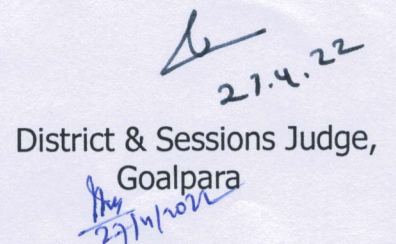 27.4.22
District & Sessions Judge,
Goalpara
27/4/2022